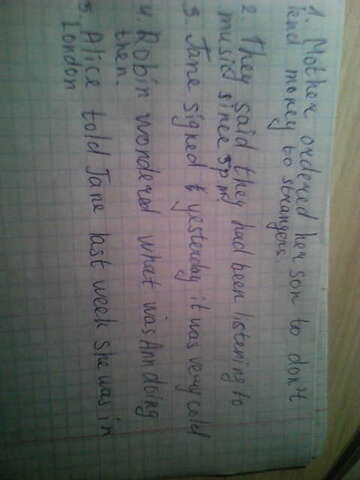 1. Mother ordered her son to don't
lend money to strangers.
2. They said they had been listening to
musid since 5 pm
3 Jane signed & yesterday it was very cold
4. Robin wondered what was Ann doing
then.
5 Alice told Jane last week she was in
London